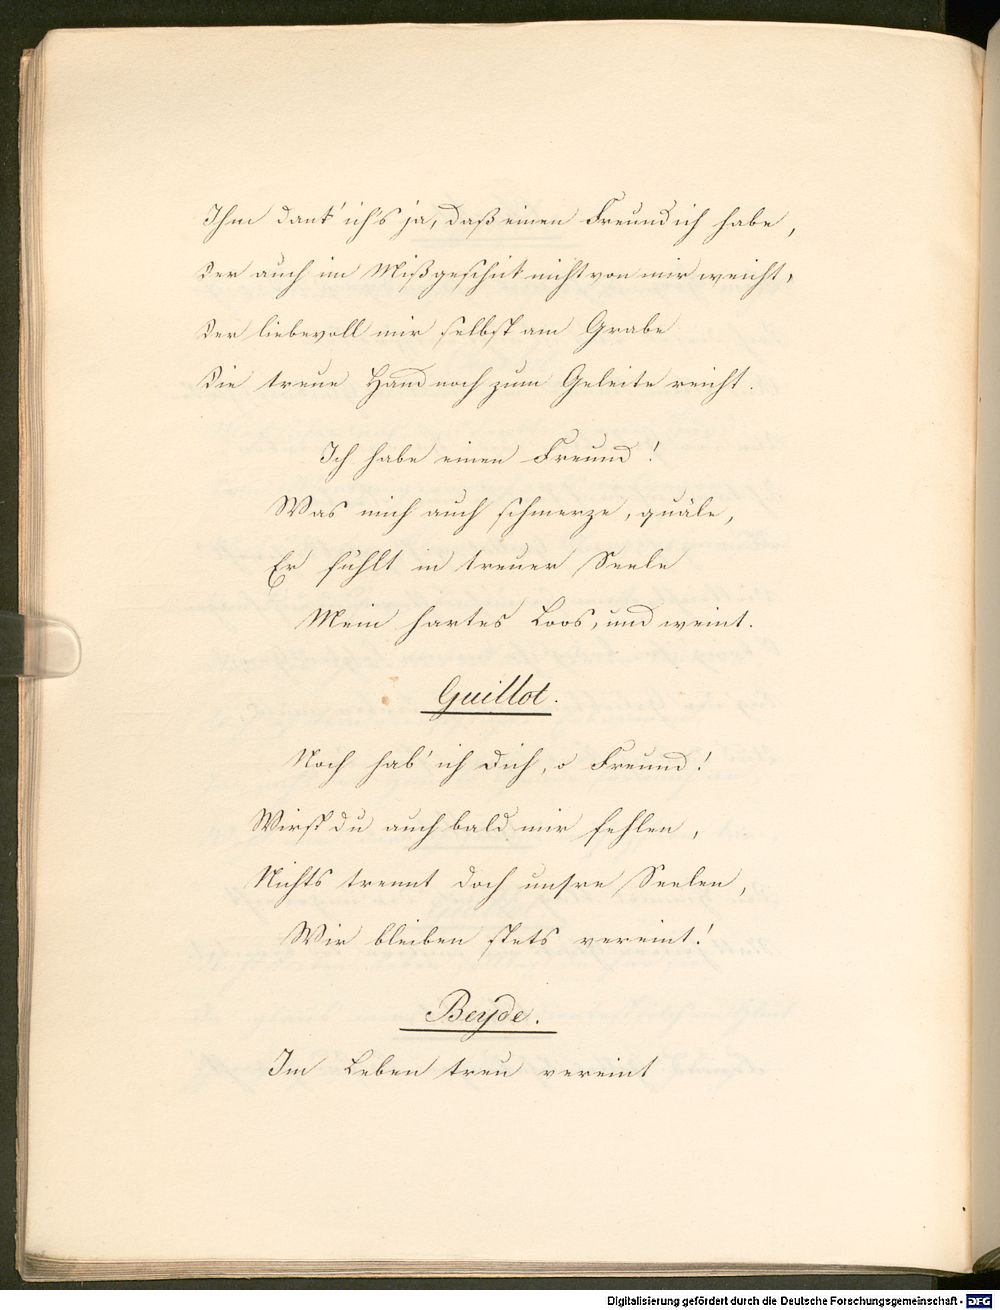 Ihm dank' ich's ja, daß einen Freund ich habe,
Der auch im Mißgeschik nicht von mir weicht,
Der liebevoll mir selbst am Grabe
Die treue Hand noch zum Geleite reicht.
Ich habe einen Freund!
Was mich auch schmerze, quäle,
Er fühlt in treuer Seele
Mein hartes Loos, und weint.
Guillot.
Noch hab' ich Dich, o Freund!
Wirst du auch bald mir fehlen,
Nichts trennt doch unsre Seelen,
Wir bleiben stets vereint!
Beyde.
Im Leben treu vereint
Digitalisierung gefördert durch die Deutsche Forschungsgemeinschaft - DFG